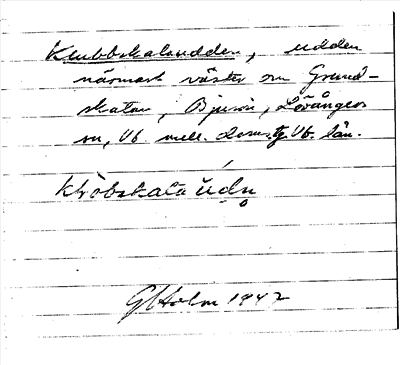 Klubbskatudden, udden
närmast väster om Grund-
skatan, Bjurön, Lövångers
sn, Vb. mell. doms., Vb. län.
Khòbskataŭdn̥
GHolm 1942